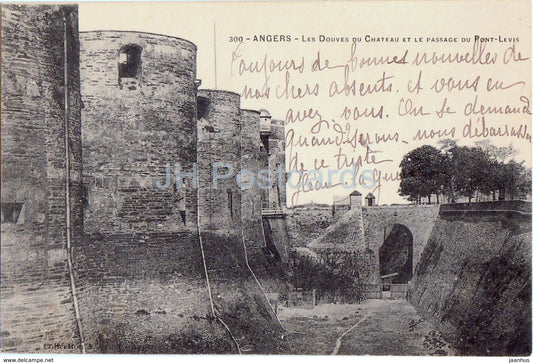 300 - ANGERS - LES DOUVES DU CHATEAU ET LE PASSAGE DU PONT-LEVIS
Toujours de bonnes nouvelles de
nos chers absents. et vous en
avez vous. On se demande
quand serons nous débarrassés
de ce triste
fléau de guerre
JH Postcards
Collection
www.delcampe.net
jeanhus